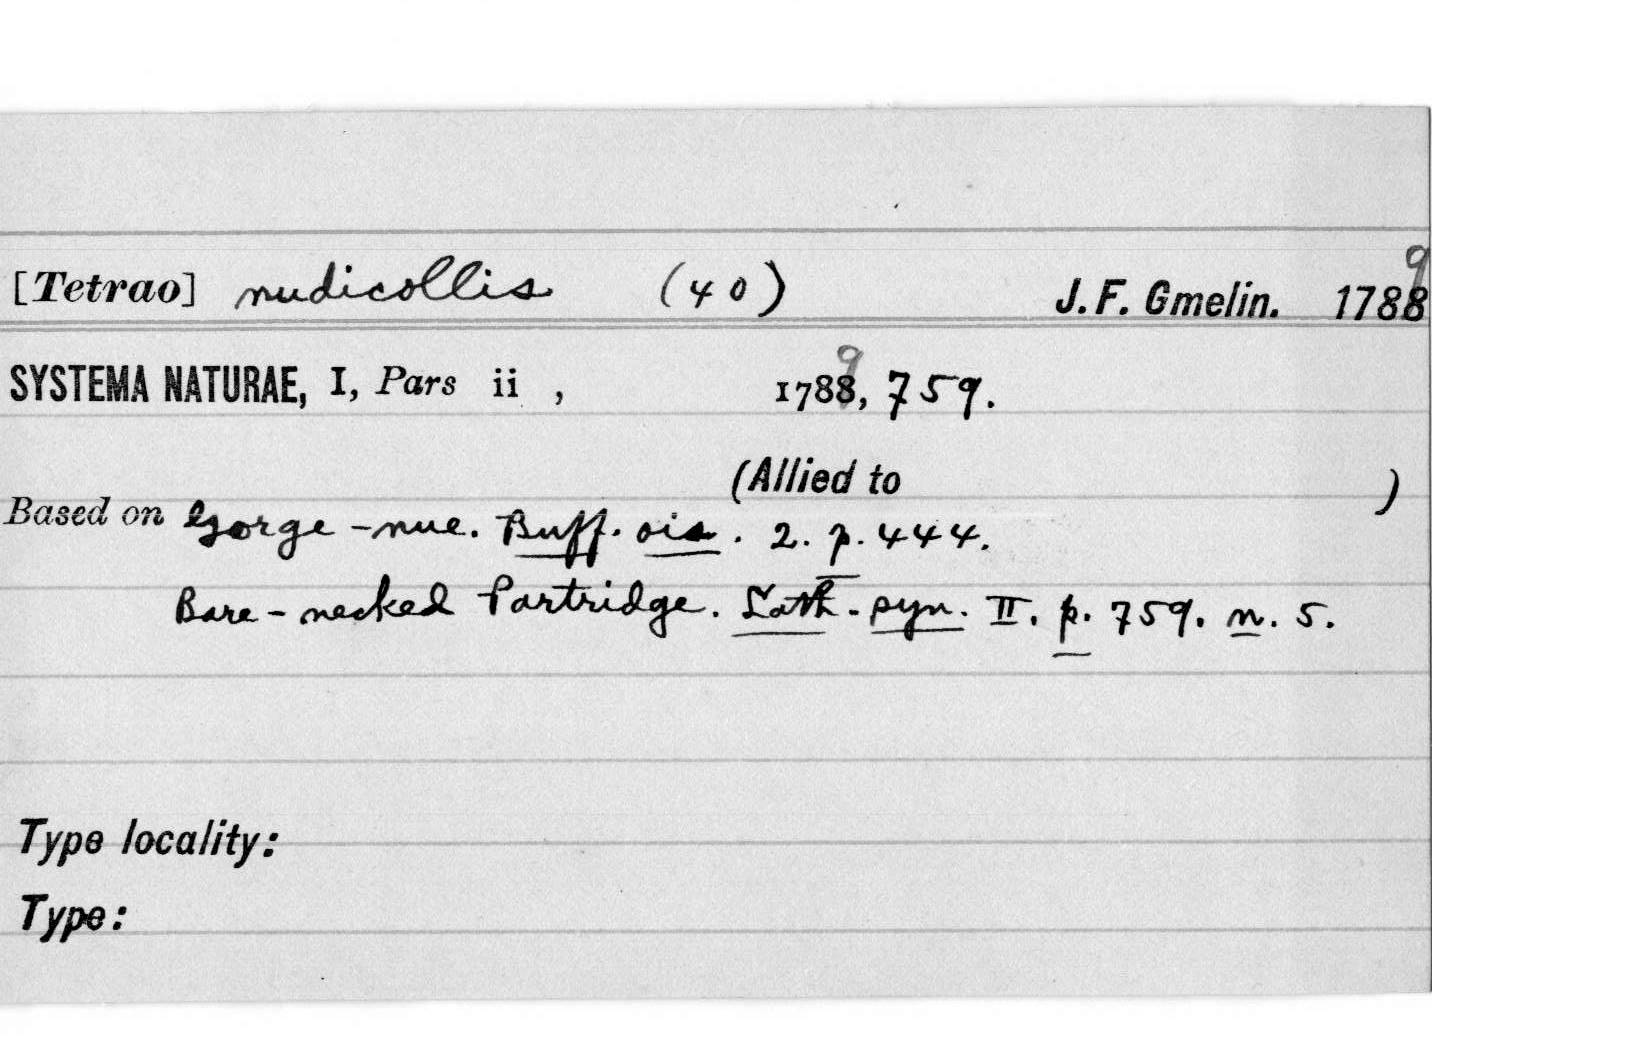 [Tetrao] nudicollis (40) J. F. Gmelin. 1788 9
SYSTEMA NATURAE, I, Pars ii , 1788 9, 759.
(Allied to )
Based on Gorge-nue. Buff. ois. 2. p. 444.
Bare-necked Partridge. Lath. syn. II. p. 759. n. 5.
Type locality:
Type: